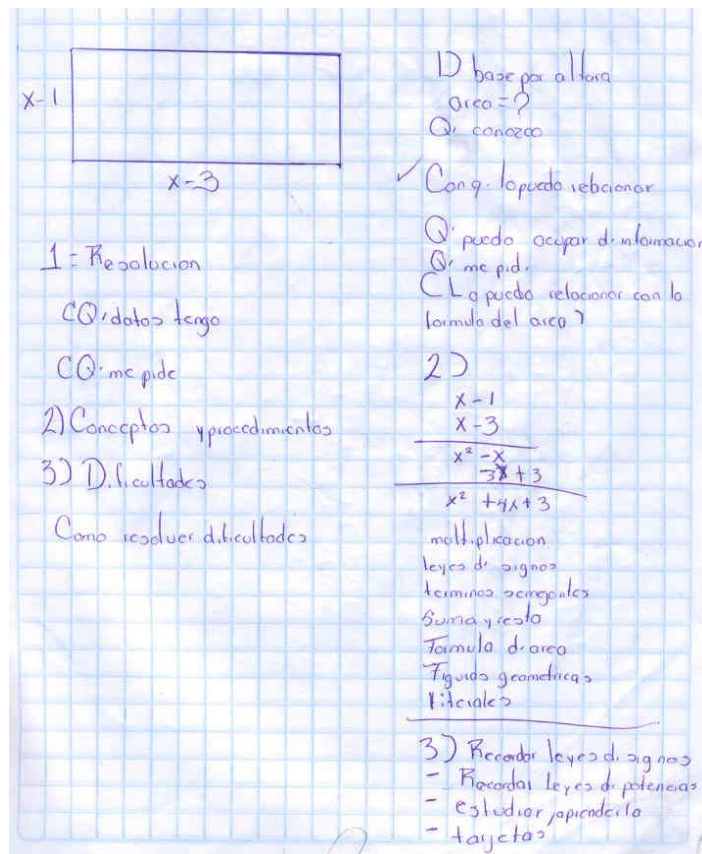 x-1
x-3
1 = Resolucion
CQ. datos tengo
CQ. me pide
2) Conceptos y procedimientos
3) Dificultades
Como resolver dificultades
1) base por altura
area = ?
Q. conozco
✓ Con q. lo puedo relacionar
Q. puedo ocupar d. informacion
Q. me pid.
CLo puedo relacionar con la
formula del area?
2)
x - 1
x - 3
x² - x
3x + 3
x² + 4x + 3
multiplicacion
leyes d. signos
terminos semejantes
Suma y resta
Formula d. area
Figuras geometricas
literales
3) Recordar leyes d. signos
- Recordar Leyes d. potencias
- estudiar, aprenderlo
- tarjetas